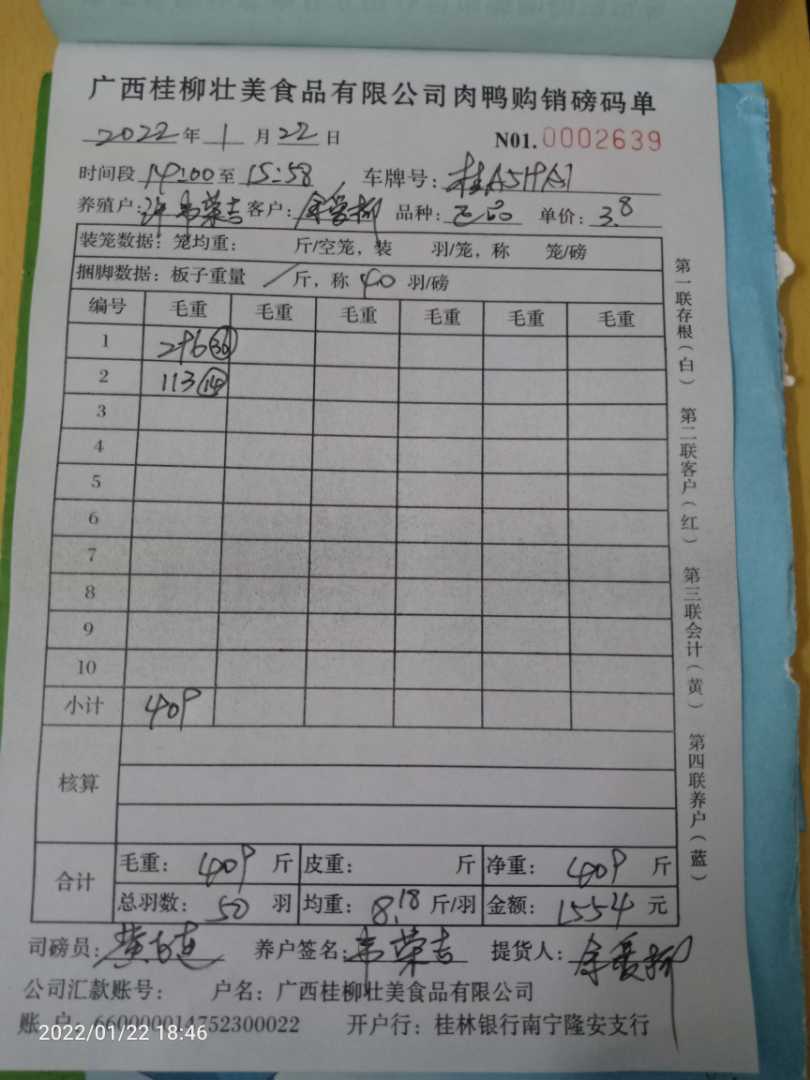 广西桂柳壮美食品有限公司肉鸭购销磅码单
2022年 1 月 22 日 N01.0002639
时间段 14:00 至 15:58 车牌号: 桂A
养殖户: 韦荣吉 客户: 余爱柳 品种: 正品 单价: 3.8
装笼数据: 笼均重: 斤/空笼, 装 羽/笼, 称 笼/磅
捆脚数据: 板子重量 / 斤, 称 40 羽/磅
编号 毛重 毛重 毛重 毛重 毛重 毛重
1 296 (36)
2 113 (14)
3
4
5
6
7
8
9
10
小计 409
核算
合计 毛重: 409 斤 皮重: 斤 净重: 409 斤
总羽数: 50 羽 均重: 8.18 斤/羽 金额: 1554 元
司磅员: 黄 养户签名: 韦荣吉 提货人: 余爱柳
公司汇款账号: 户名: 广西桂柳壮美食品有限公司
账 户: 660000014752300022 开户行: 桂林银行南宁隆安支行
2022/01/22 18:46
第一联存根(白) 第二联客户(红) 第三联会计(黄) 第四联养户(蓝)